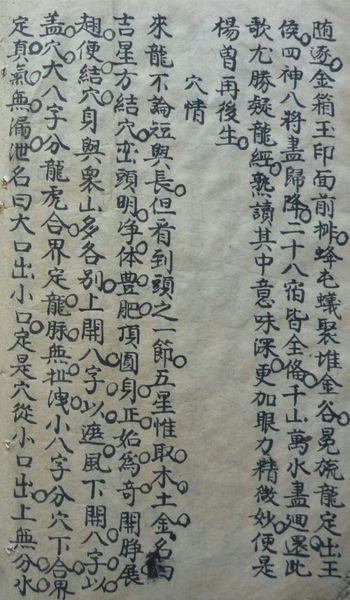 随逐金箱玉印面前排蜂屯蟻聚堆金谷冕旒龍定出王
侯四神八將盡歸降二十八宿皆全俻千山萬水盡迴還此
歌尤勝疑龍經熟讀其中意味深更加眼力精微妙便是
楊曽再後生
穴情
來龍不論短與長但看到頭之一節五星惟取木土金名曰
吉星方結穴峦頭明净体豊肥頂圓身正始為奇開脖展
翅便結穴身與衆山多各别上開八字以遮風下開八字以
盖穴大八字分龍虎合界定龍脉無扯洩小八字分穴下合界
定真氣無漏泄名曰大口出小口定是穴從小口出上無分水